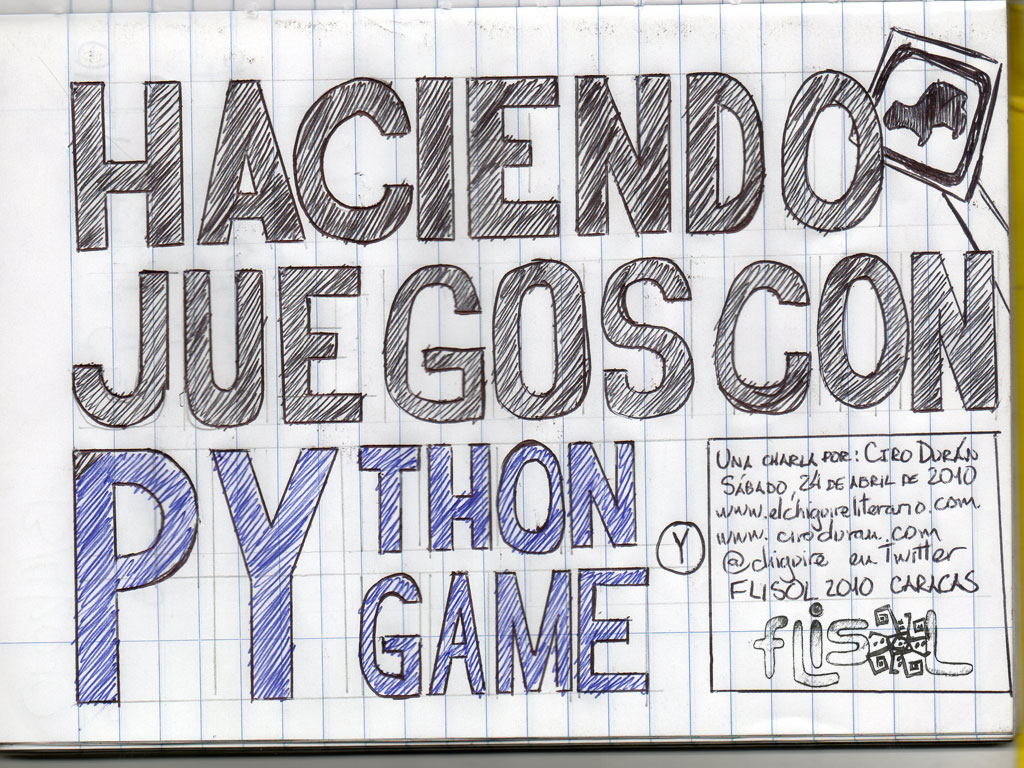 HACIENDO
JUEGOS CON
PYTHON
Y
PYGAME
UNA CHARLA POR: CIRO DURÁN
SÁBADO, 24 DE ABRIL DE 2010
www.elchiguireliterario.com
www.ciroduran.com
@chiguire en Twitter
FLISOL 2010 CARACAS
fLiSOL